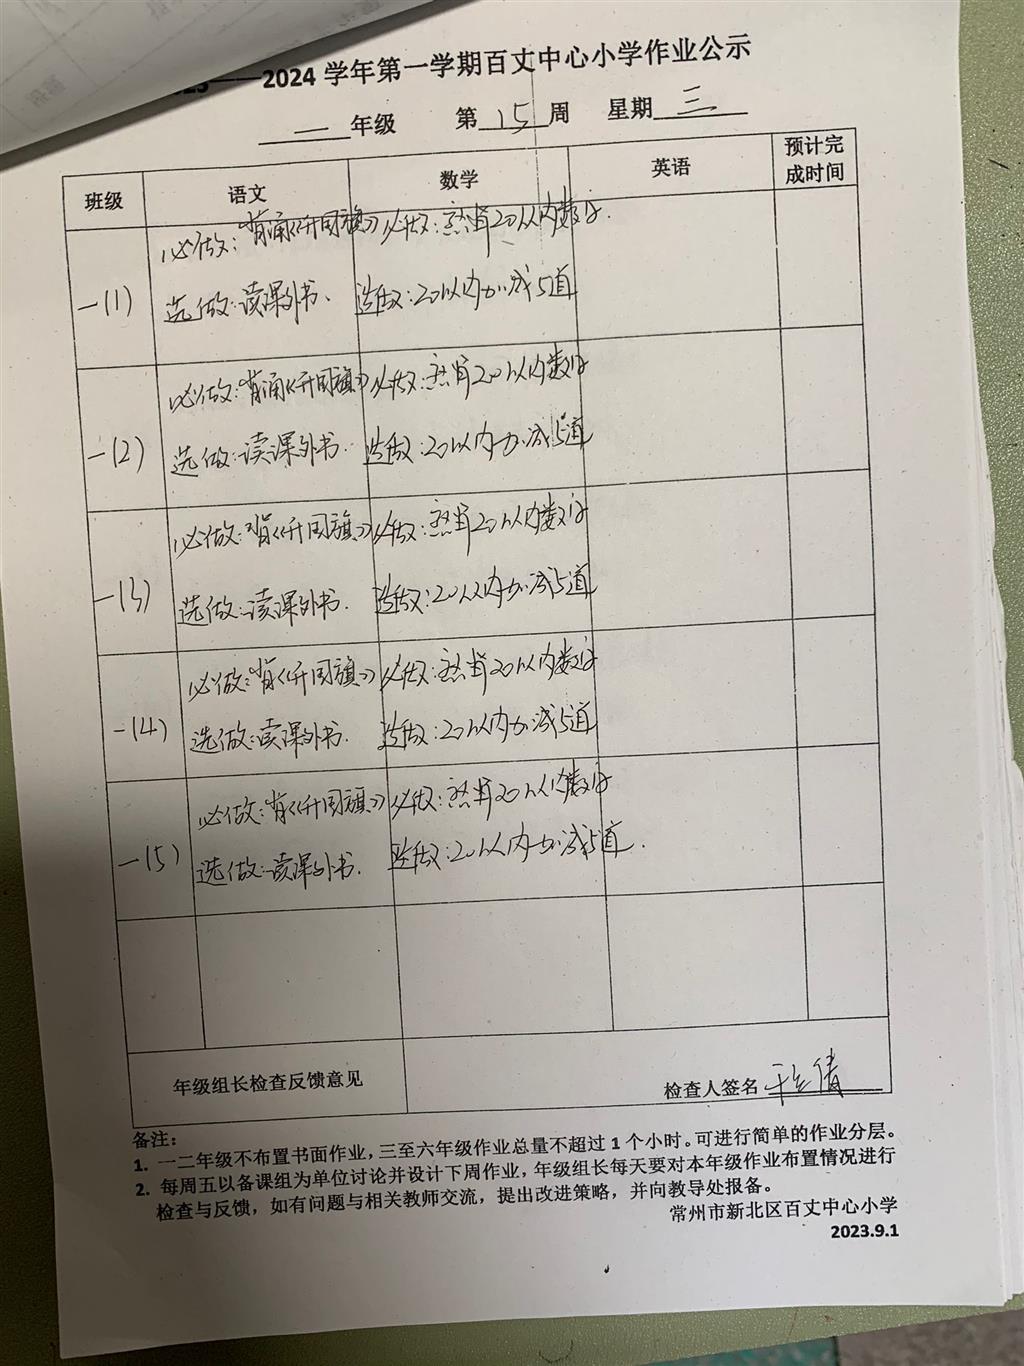 2024 学年第一学期百丈中心小学作业公示
一 年级 第 15 周 星期 三
班级 语文 数学 英语 预计完成时间
必做：背诵《升国旗》 必做：熟背20以内数位.
一(1)
选做：读课外书. 选做：20以内加、减5道
必做：背诵《升国旗》 必做：熟背20以内数位
一(2)
选做：读课外书. 选做：20以内加减5道
必做：背《升国旗》 必做：熟背20以内数位
一(3)
选做：读课外书. 选做：20以内加减5道
必做：背《升国旗》 必做：熟背20以内数位
一(4)
选做：读课外书. 选做：20以内加减5道
必做：背《升国旗》 必做：熟背20以内数位
一(5)
选做：读课外书. 选做：20以内加减5道.
年级组长检查反馈意见 检查人签名
备注：
1. 一二年级不布置书面作业，三至六年级作业总量不超过 1 个小时。可进行简单的作业分层。
2. 每周五以备课组为单位讨论并设计下周作业，年级组长每天要对本年级作业布置情况进行
检查与反馈，如有问题与相关教师交流，提出改进策略，并向教导处报备。
常州市新北区百丈中心小学
2023.9.1